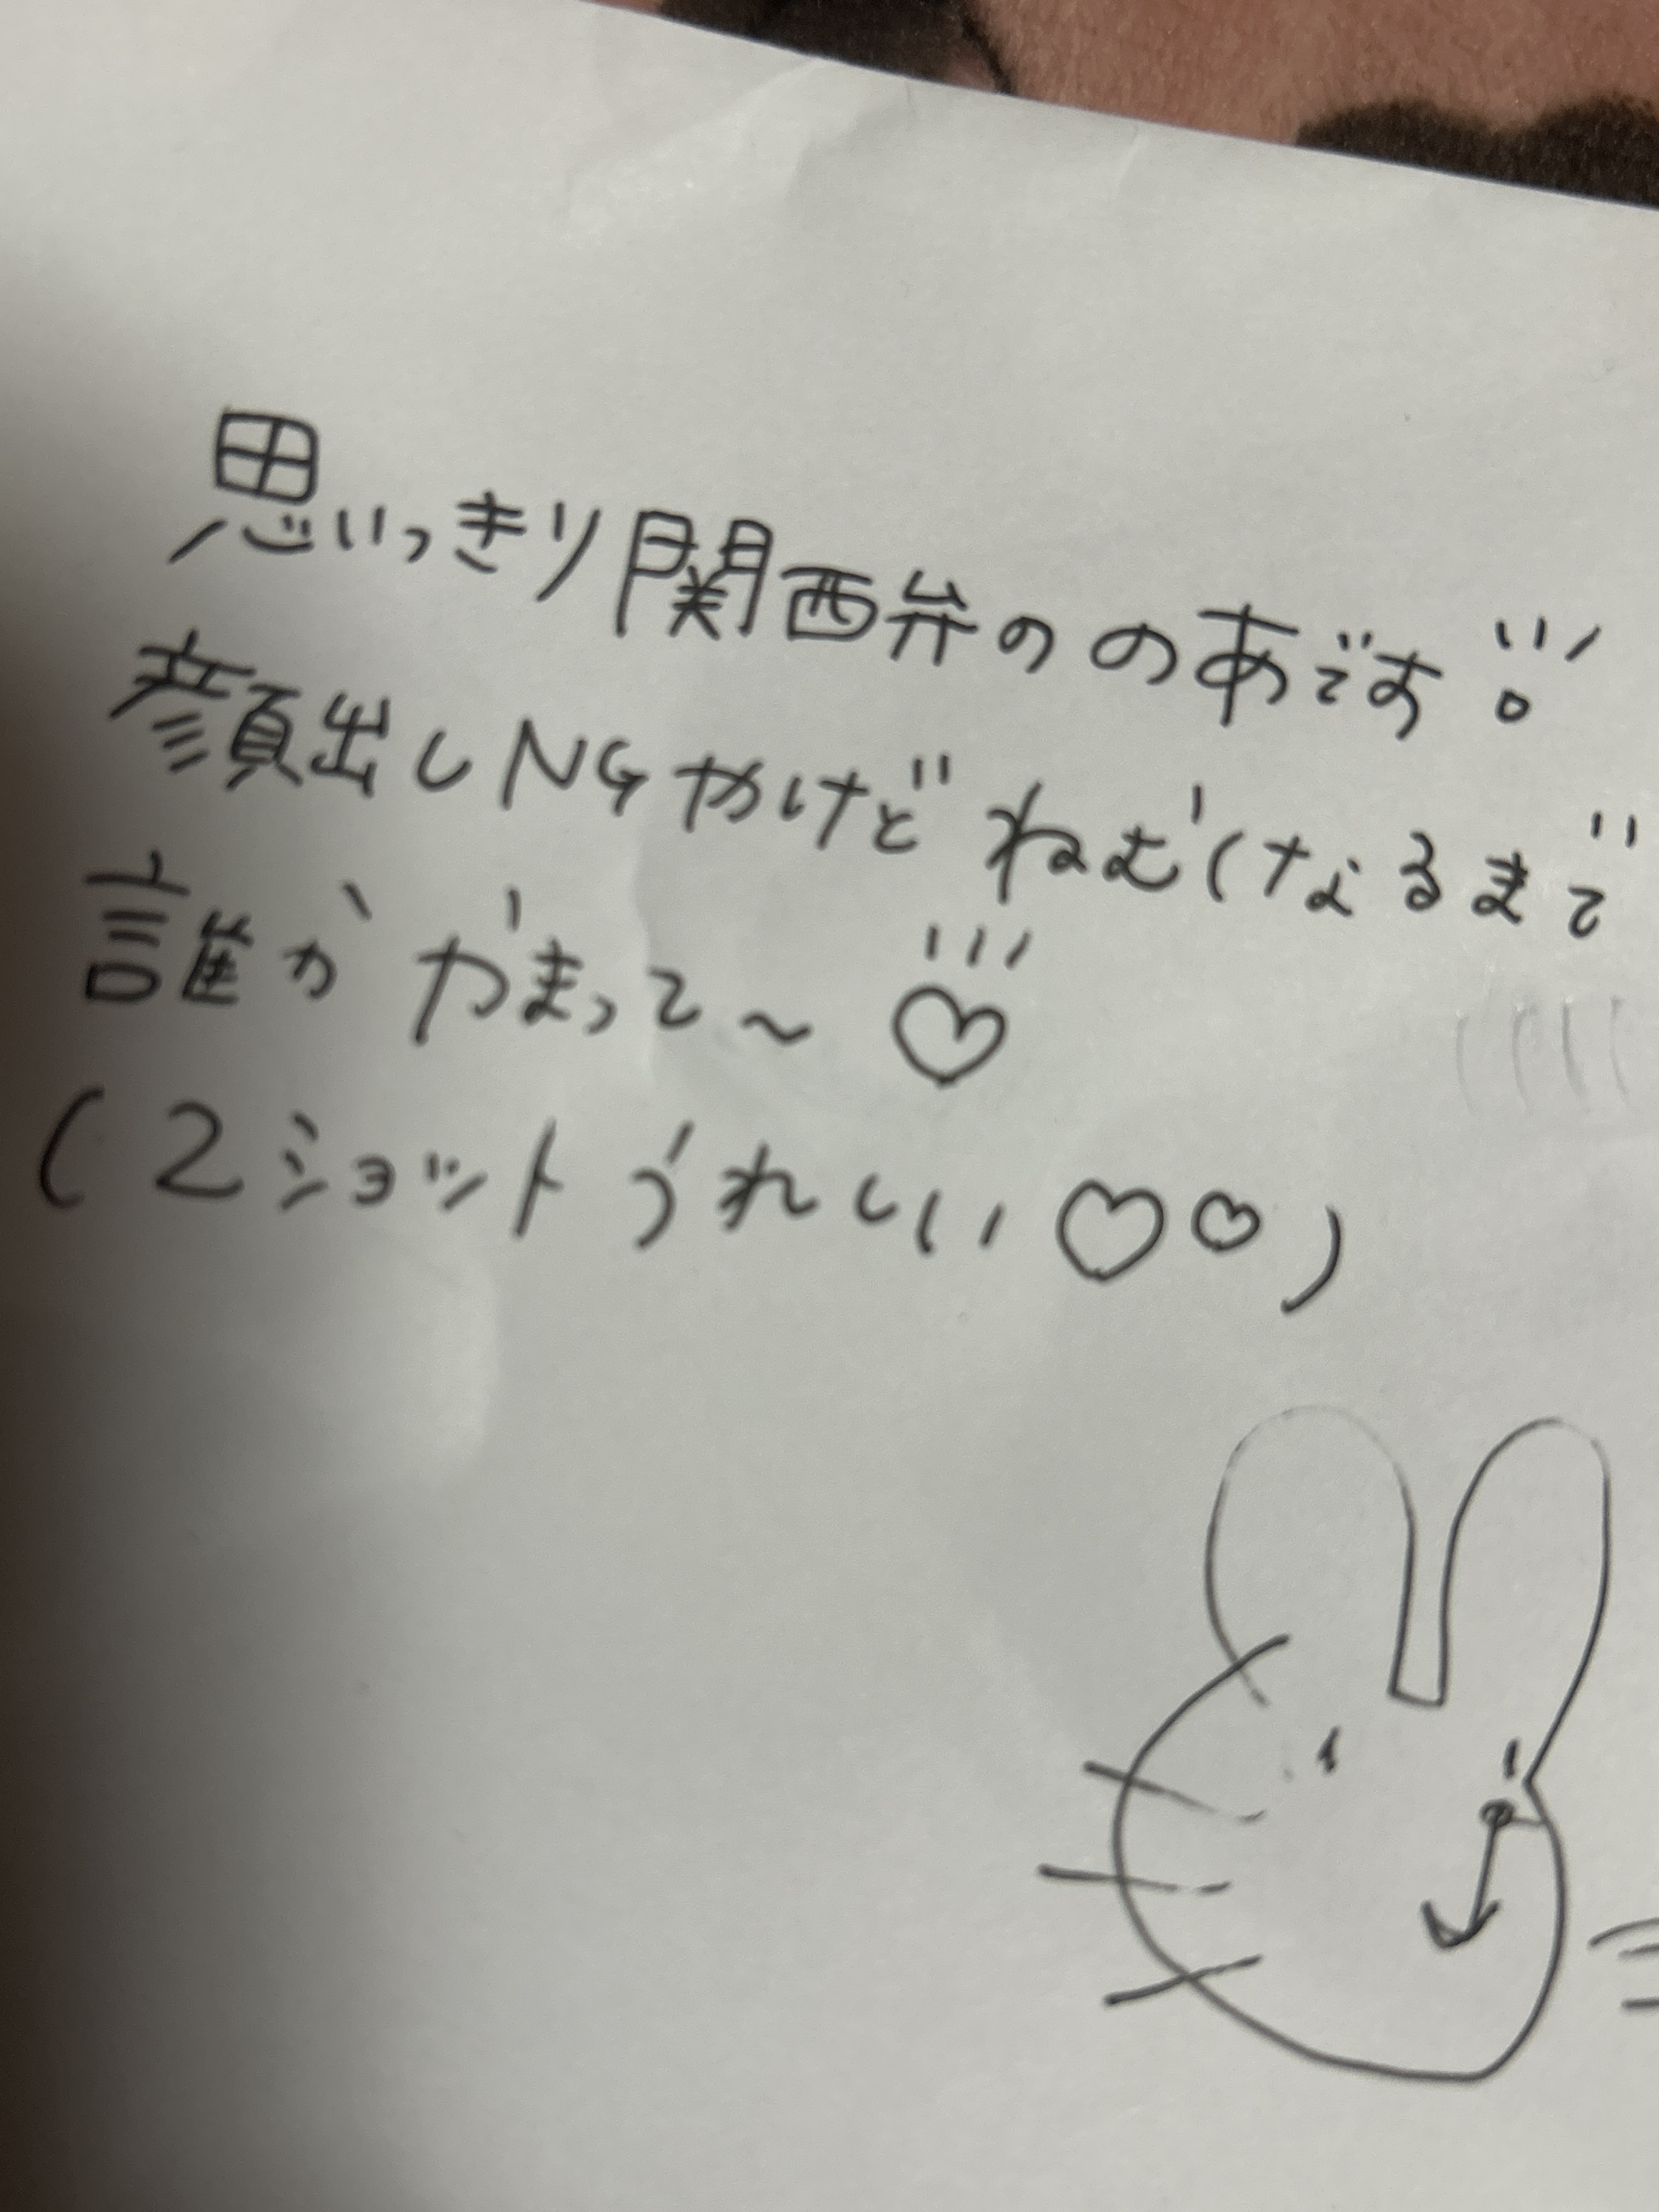 思いっきり関西弁ののあです!
顔出しNGやけどねむくなるまで
誰かかまって～♡
(2ショットうれしい♡♡)